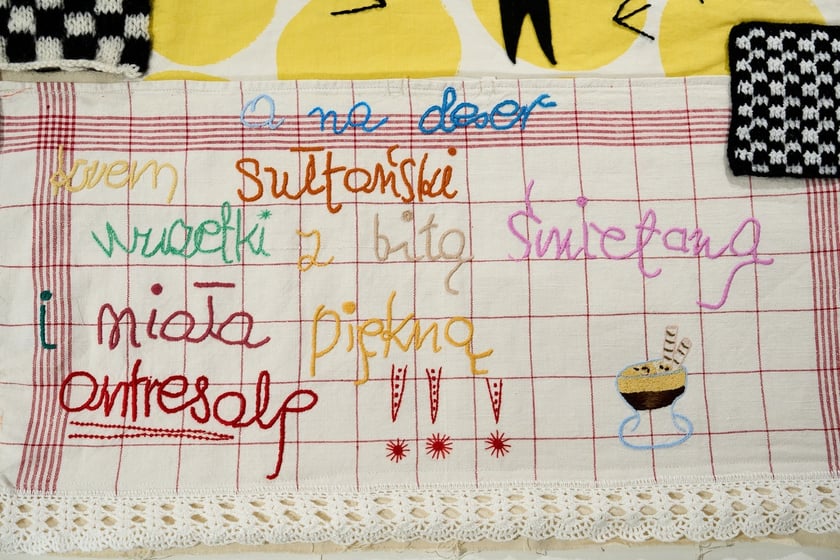 a na deser
krem sułtański
wuzetki z bitą śmietaną
i miała piękną
antresolę !!!